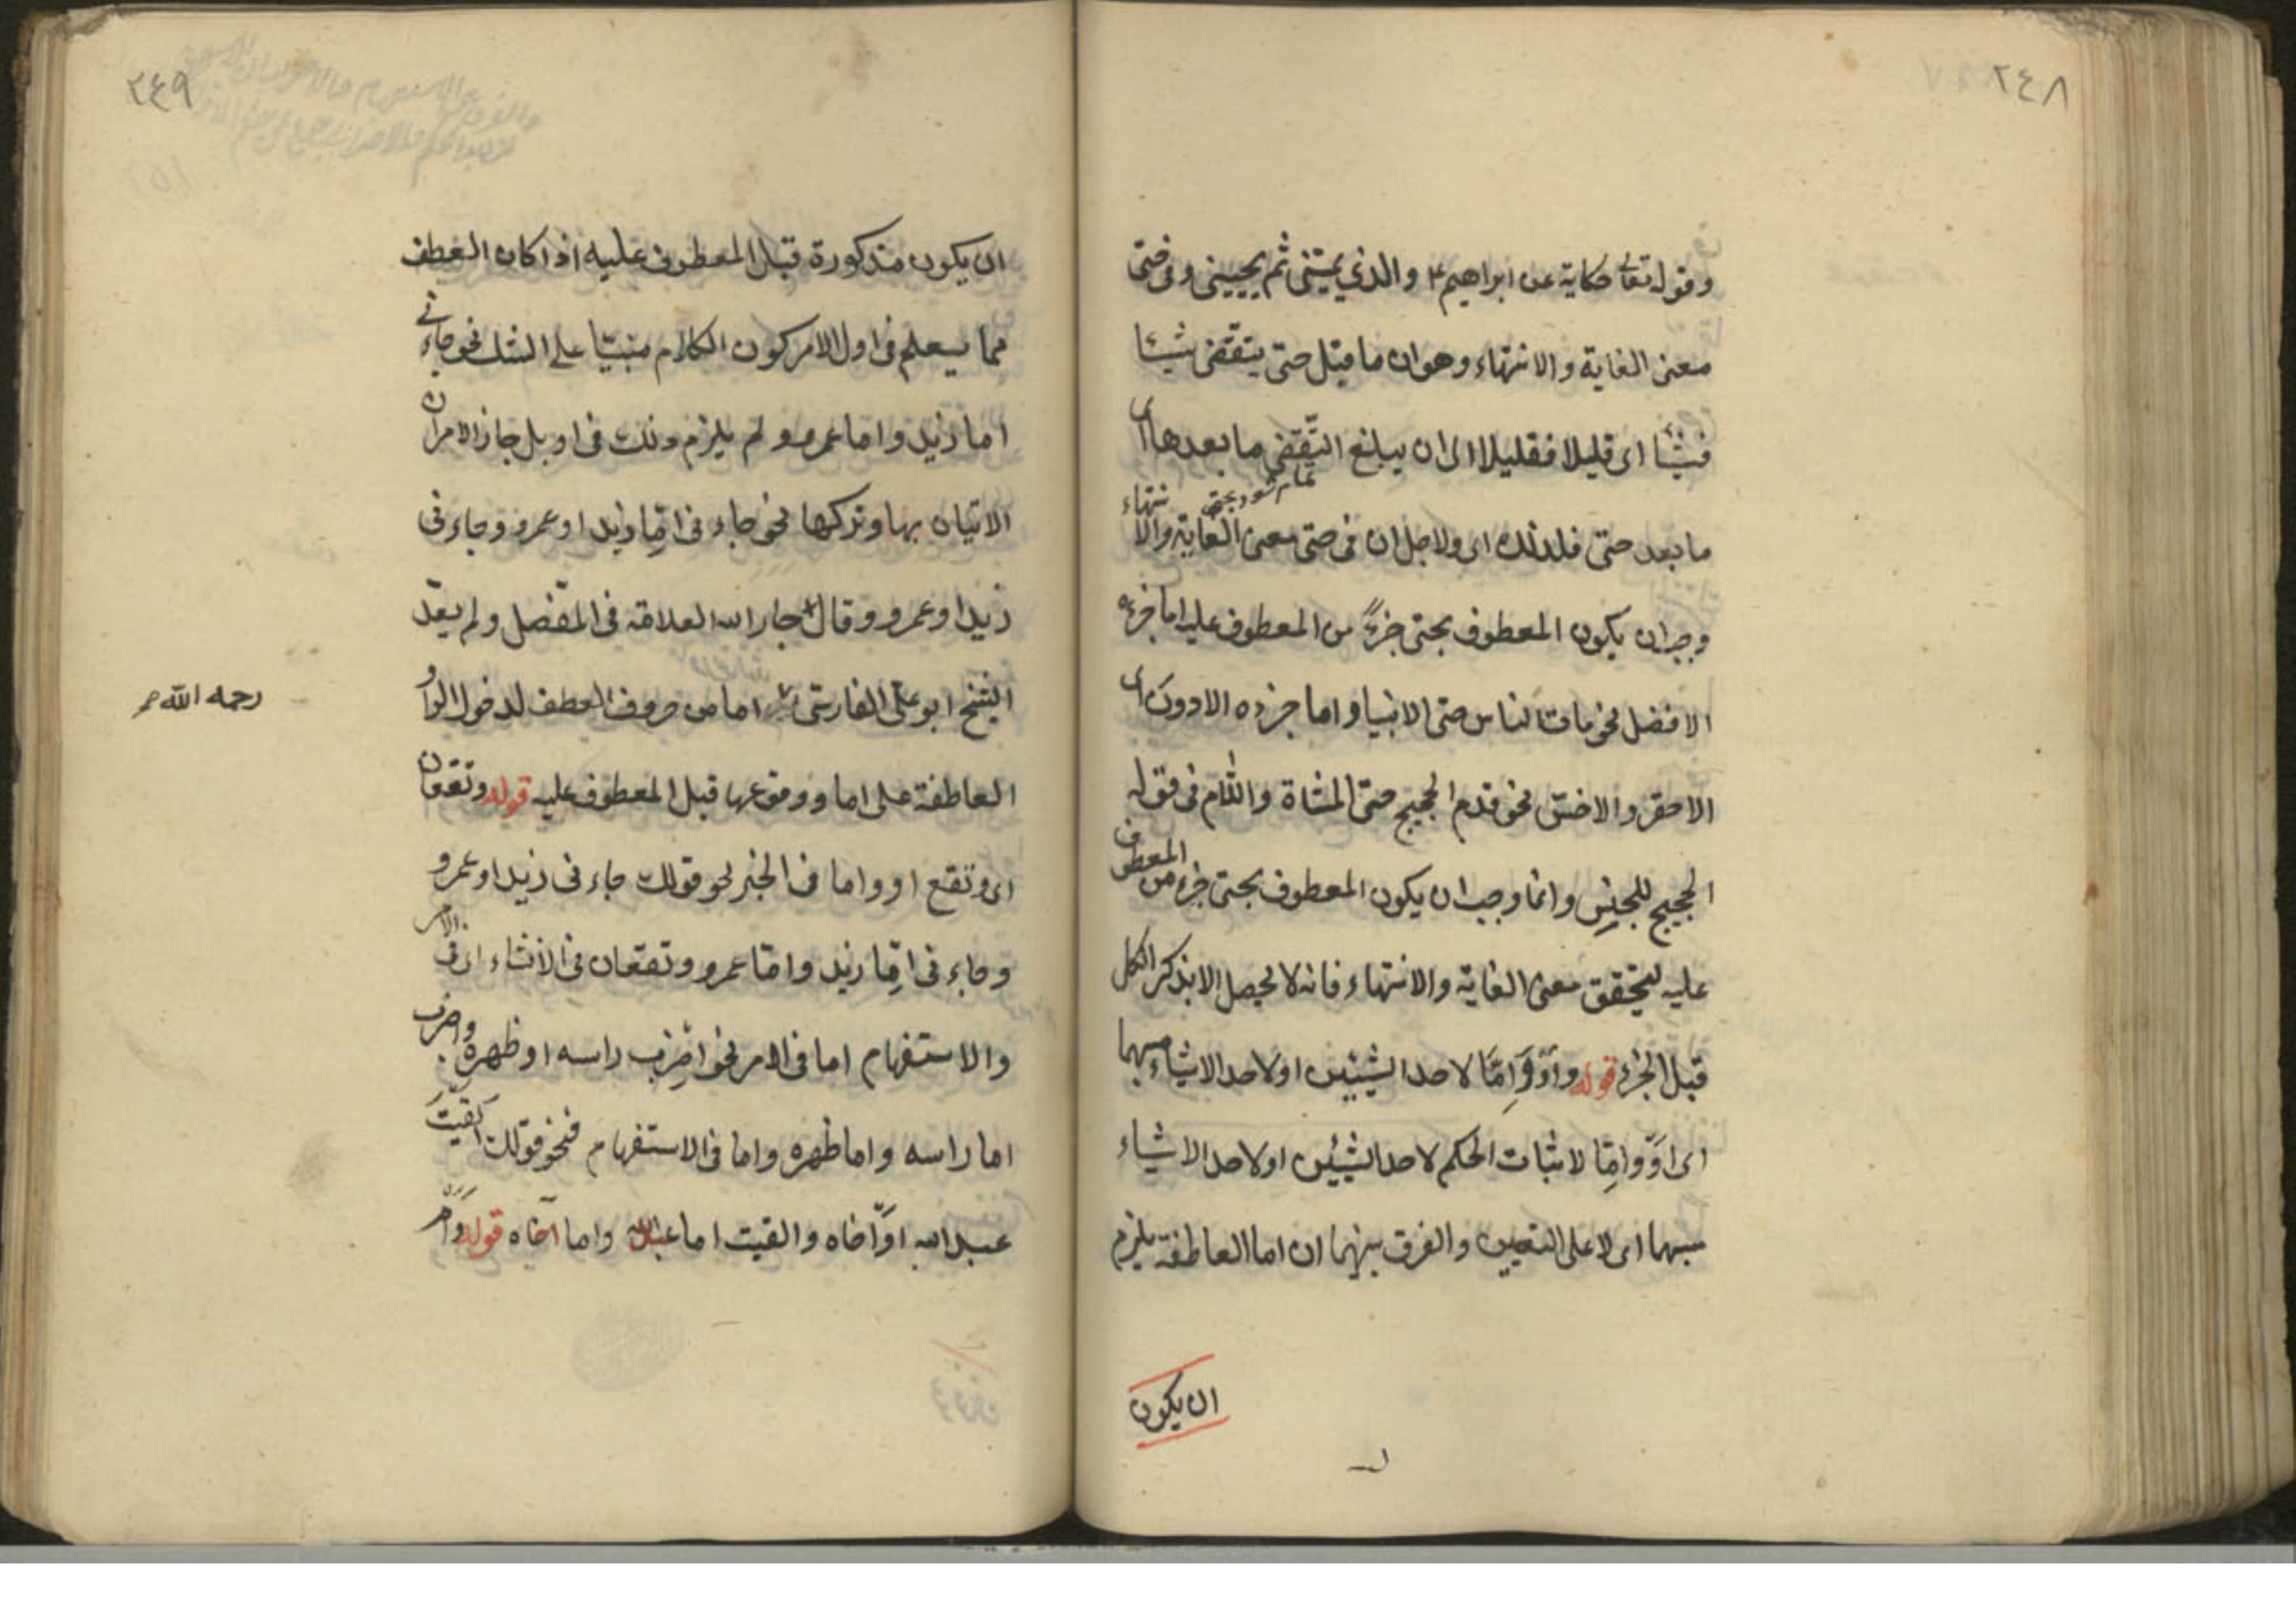 ٢٤٨
وقوله تعالى حكاية عن ابراهيم ع والذي يميتني ثم يحييني وفي حتى
معنى الغاية والانتهاء وهو ان ما قبل حتى يتقضى شيئا
فشيئا اى قليلا فقليلا الى ان يبلغ التقضى ما بعدها اى
ما بعد حتى فلذلك اى ولاجل ان فى حتى معنى الغاية والانتهاء
وجب ان يكون المعطوف بحتى جزءً من المعطوف عليه اما جزءه
الافضل نحو مات الناس حتى الانبيا واما جزءه الادون اى
الاحقر والاخس نحو قدم الحجيج حتى المشاة واللام فى قوله
الحجيج للجنس وانما وجب ان يكون المعطوف بحتى جزء من المعطوف
عليه ليتحقق معنى الغاية والانتهاء فانه لا يحصل الا بذكر الكل
قبل الجزء قوله وأوْ وَاِمَّا لاحد الشيئين او لاحد الاشياء مبهما
اى اوْ واِمّا لاثبات الحكم لاحد الشيئين او لاحد الاشياء
مبهما اى لا على التعيين والفرق بينهما ان اما العاطفة يلزم
ان يكون
٢٤٩
ان يكون مذكورة قبل المعطوف عليه اذا كان العطف
مما يعلم فى اول الامر كون الكلام مبنيّا على الشك نحو جاءنى
اما زيد واما عمرو ولم يلزم ذلك فى او بل جاز الامران
الاتيان بها وتركها نحو جاءنى اِمّا زيد او عمرو وجاءنى
زيد او عمرو وقال جار الله العلامة فى المفصل ولم يعدّ
الشيخ ابو على الفارسى اما من حروف العطف لدخول الواو
رحمه الله
العاطفة على اما ووقوعها قبل المعطوف عليه قوله وتقعان
اى وتقع او واما فى الخبر نحو قولك جاءنى زيد او عمرو
وجاءنى اِمّا زيد وامّا عمرو وتقعان فى الانشاء اى فى الامر
والاستفهام اما فى الامر نحو اضرب راسه او ظهره واضرب
اما راسه واما ظهره واما فى الاستفهام فنحو قولك القيت
عبد الله او اخاه والقيت اما عبد الله واما اخاه قوله وام